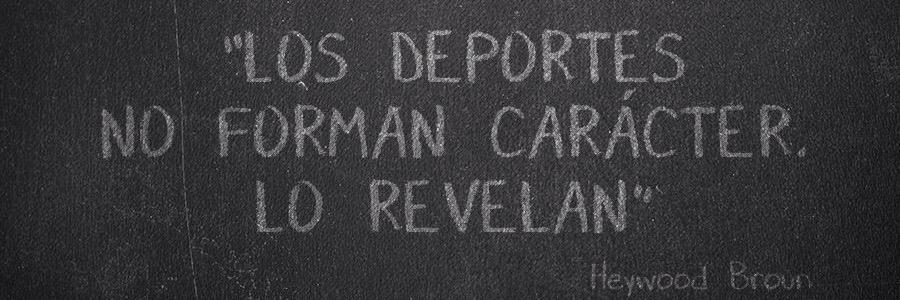 "LOS DEPORTES
NO FORMAN CARÁCTER.
LO REVELAN"
Heywood Broun